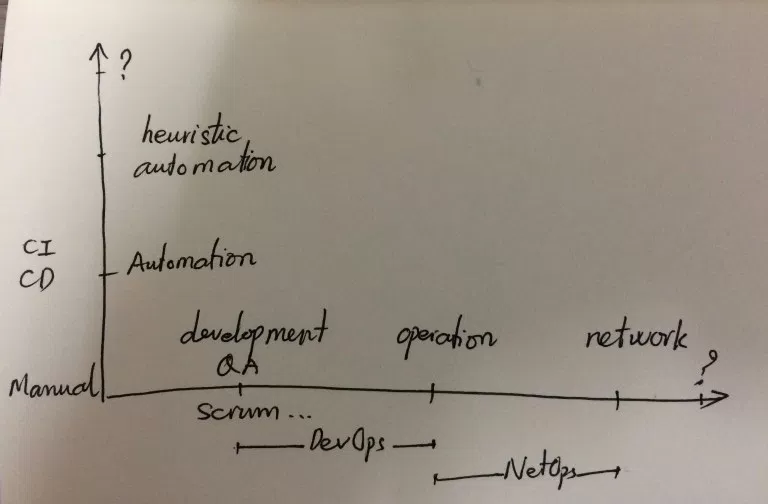 ?
heuristic
automation
CI
CD
Automation
development
QA
operation
network
?
Manual
Scrum...
DevOps
NetOps